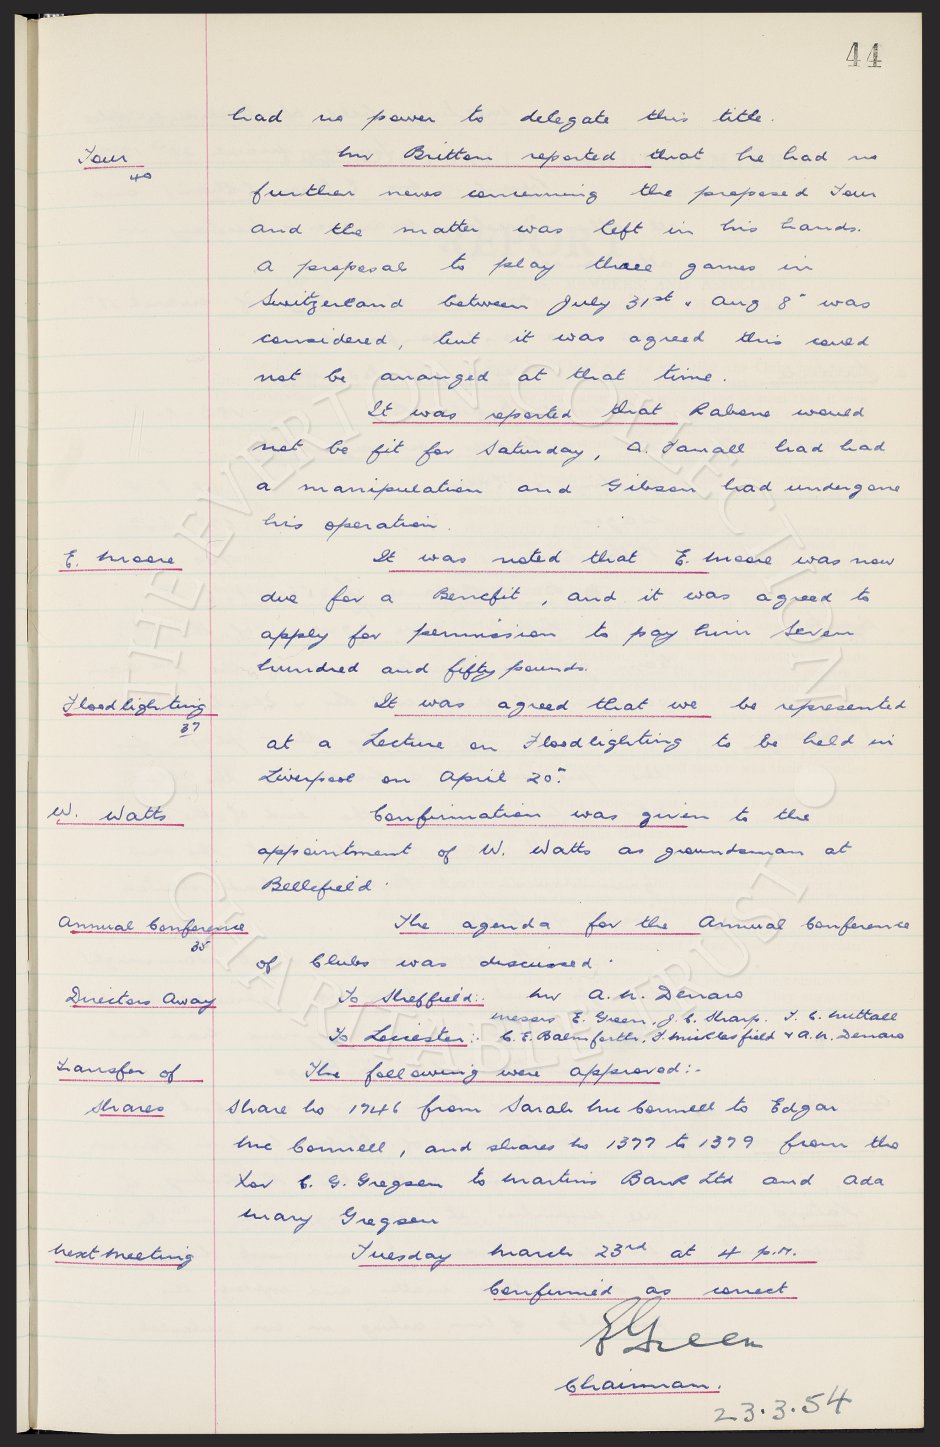 44
had no power to delegate this title.
Tour
40
Mr Britton reported that he had no
further news concerning the proposed Tour
and the matter was left in his hands.
A proposal to play three games in
Switzerland between July 31st & Aug 8" was
considered, but it was agreed this could
not be arranged at that time.
It was reported that Rabone would
not be fit for Saturday, A. Farrall had had
a manipulation and Gibson had undergone
his operation.
E. Moore
It was noted that E. Moore was now
due for a Benefit, and it was agreed to
apply for permission to pay him seven
hundred and fifty pounds.
Floodlighting
37
It was agreed that we be represented
at a Lecture on Floodlighting to be held in
Liverpool on April 20".
W. Watts
Confirmation was given to the
appointment of W. Watts as groundsman at
Bellefield.
Annual Conference
35
The agenda for the Annual Conference
of Clubs was discussed.
Directors Away
To Sheffield:- Mr A. N. Denaro
Messrs E. Green, J. C. Sharp. T. C. Nuttall
To Leicester:- C. E. Balmforth, F. Micklesfield & A. N. Denaro
Transfer of
Shares
The following were approved:-
Share No 1746 from Sarah McConnell to Edgar
McConnell, and shares No 1377 to 1379 from the
Rev C. G. Gregson to Martins Bank Ltd and Ada
Mary Gregson
Next Meeting
Tuesday March 23rd at 4 p.m.
Confirmed as correct
E Green
Chairman.
23.3.54
THE EVERTON COLLECTION
CHARITABLE TRUST